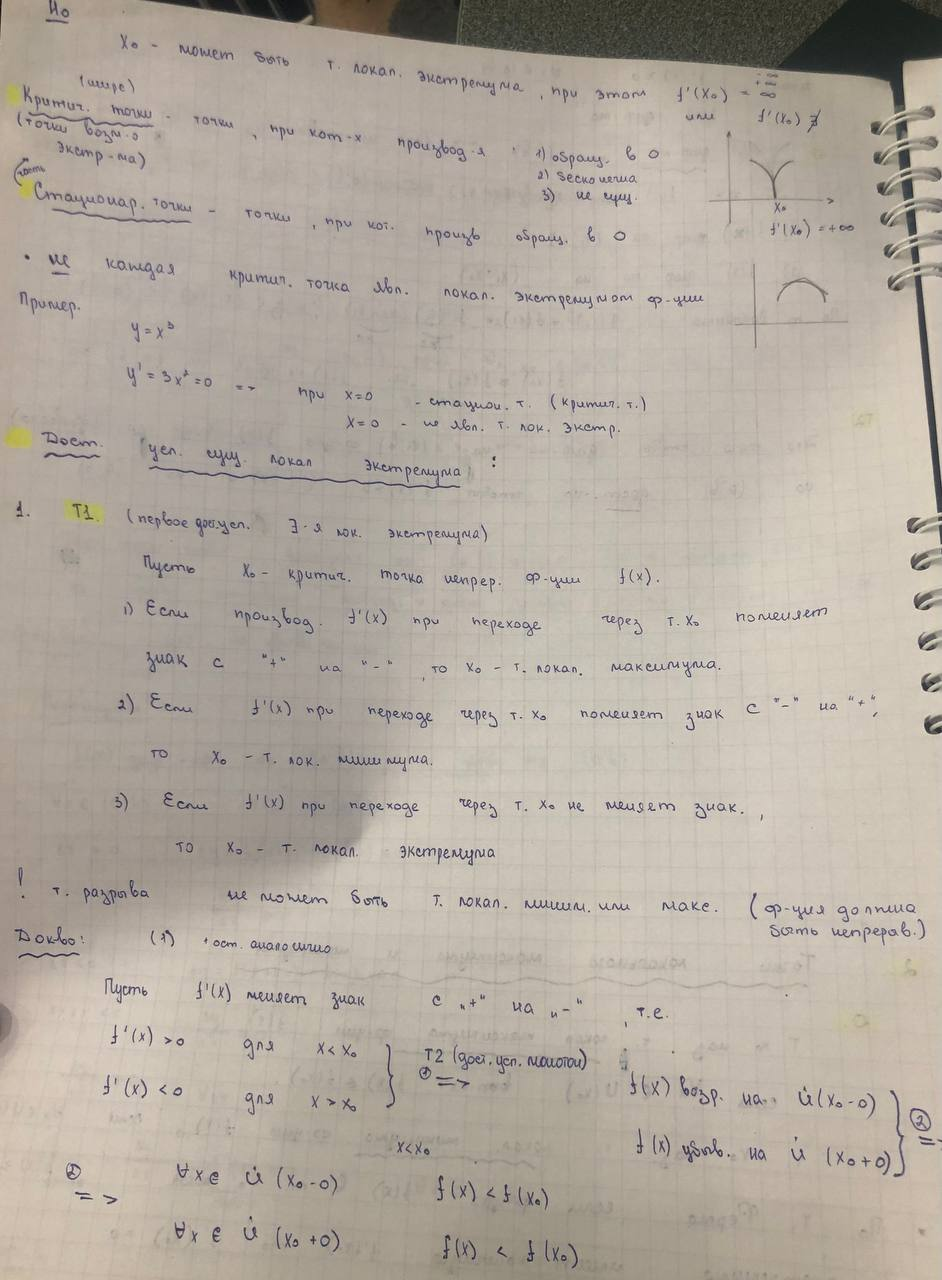 Но
x₀ - может быть т. локал. экстремума, при этом f'(x₀) = ∞
+∞
-∞
или f'(x₀) ∄
(шире)
Критич. точки - точки, при кот-х производ-я : 1) обращ. в 0
(точки возм-о экстр-ма)
2) бесконечна
3) не сущ.
x₀
f'(x₀) = +∞
часть
Стационар. точки - точки, при кот. произв обращ. в 0
• не каждая критич. точка явл. локал. экстремумом ф-ции
Пример.
y = x³
y' = 3x² = 0 => при x=0 - стацион. т. (критич. т.)
x=0 - не явл. т. лок. экстр.
Дост. усл. сущ. локал экстремума :
1. T1. (первое дос. усл. ∃-я лок. экстремума)
Пусть x₀ - критич. точка непрер. ф-ции f(x).
1) Если производ. f'(x) при переходе через т. x₀ поменяет
знак с "+" на "-", то x₀ - т. локал. максимума.
2) Если f'(x) при переходе через т. x₀ поменяет знак с "-" на "+",
то x₀ - т. лок. минимума.
3) Если f'(x) при переходе через т. x₀ не меняет знак.,
то x₀ - т. локал. экстремума
! т. разрыва не может быть т. локал. миним. или макс. (ф-ция должна
быть непрерав.)
Докво: (1) , ост. аналогично
Пусть f'(x) меняет знак с "+" на "-", т.е.
f'(x) > 0 для x < x₀
f'(x) < 0 для x > x₀
} T2 (дост. усл. монотон)
① =>
f(x) возр. на U̇(x₀-0)
f(x) убыв. на U̇ (x₀+0)
} ② =>
② =>
x<x₀
∀x ∈ U̇ (x₀-0) f(x) < f(x₀)
∀x ∈ U̇ (x₀+0) f(x) < f(x₀)